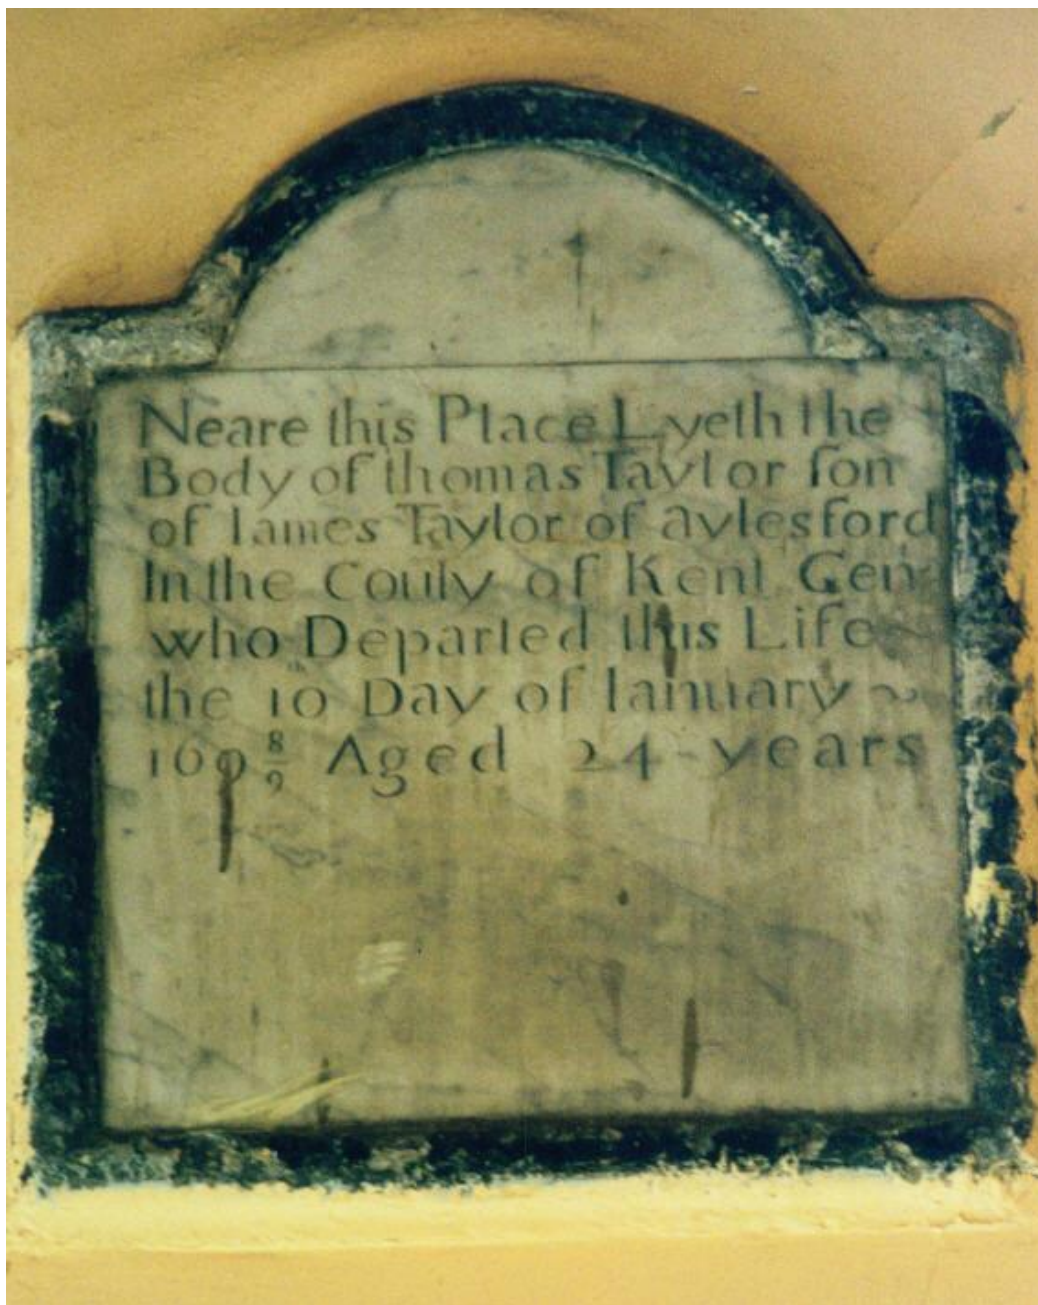 Neare this Place Lyeth the
Body of thomas Taylor ſon
of Iames Taylor of aylesford
In the Couty of Kent Gen
who Departed this Life
the 10th Day of Ianuary ~
169 8/9 Aged 24 years